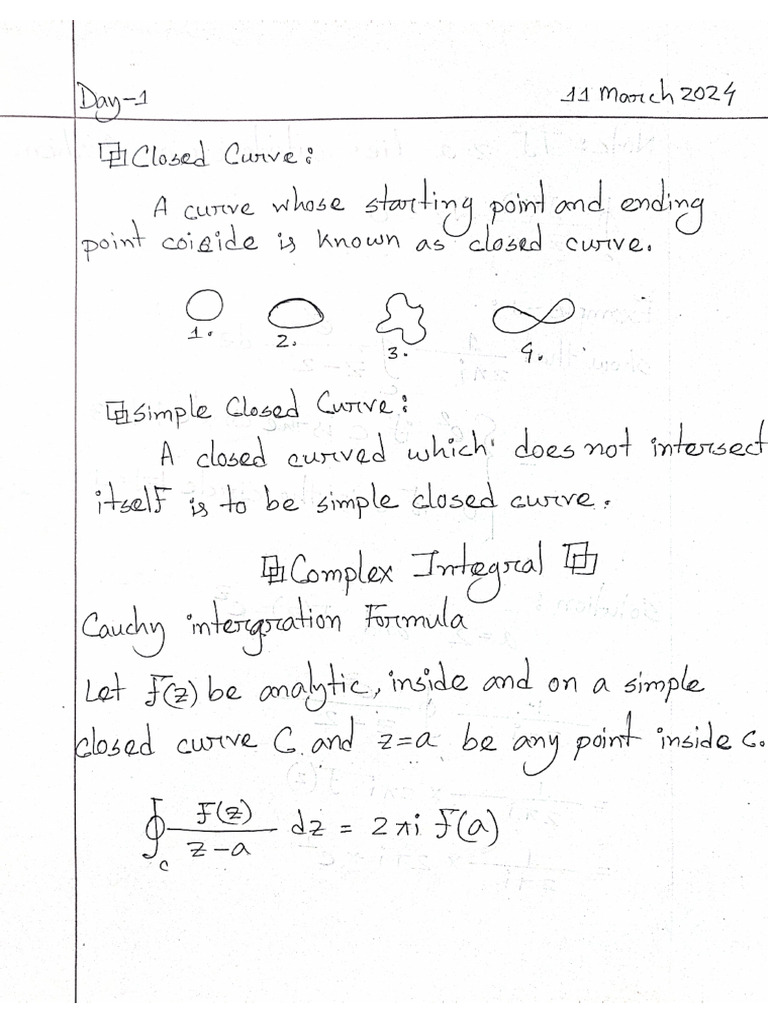 Day-1 11 March 2024
Closed Curve:
A curve whose starting point and ending
point coiside is known as closed curve.
1. 2. 3. 4.
Simple Closed Curve:
A closed curved which does not intersect
itself is to be simple closed curve.
Complex Integral
Cauchy intergration Formula
Let F(z) be analytic, inside and on a simple
closed curve C and z=a be any point inside C.
∮_C F(z)/(z-a) dz = 2πi F(a)